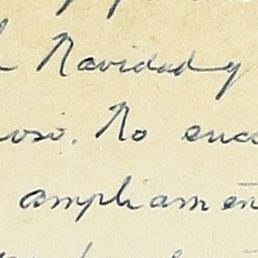 Navidad y
oso. No enc
ampliamen